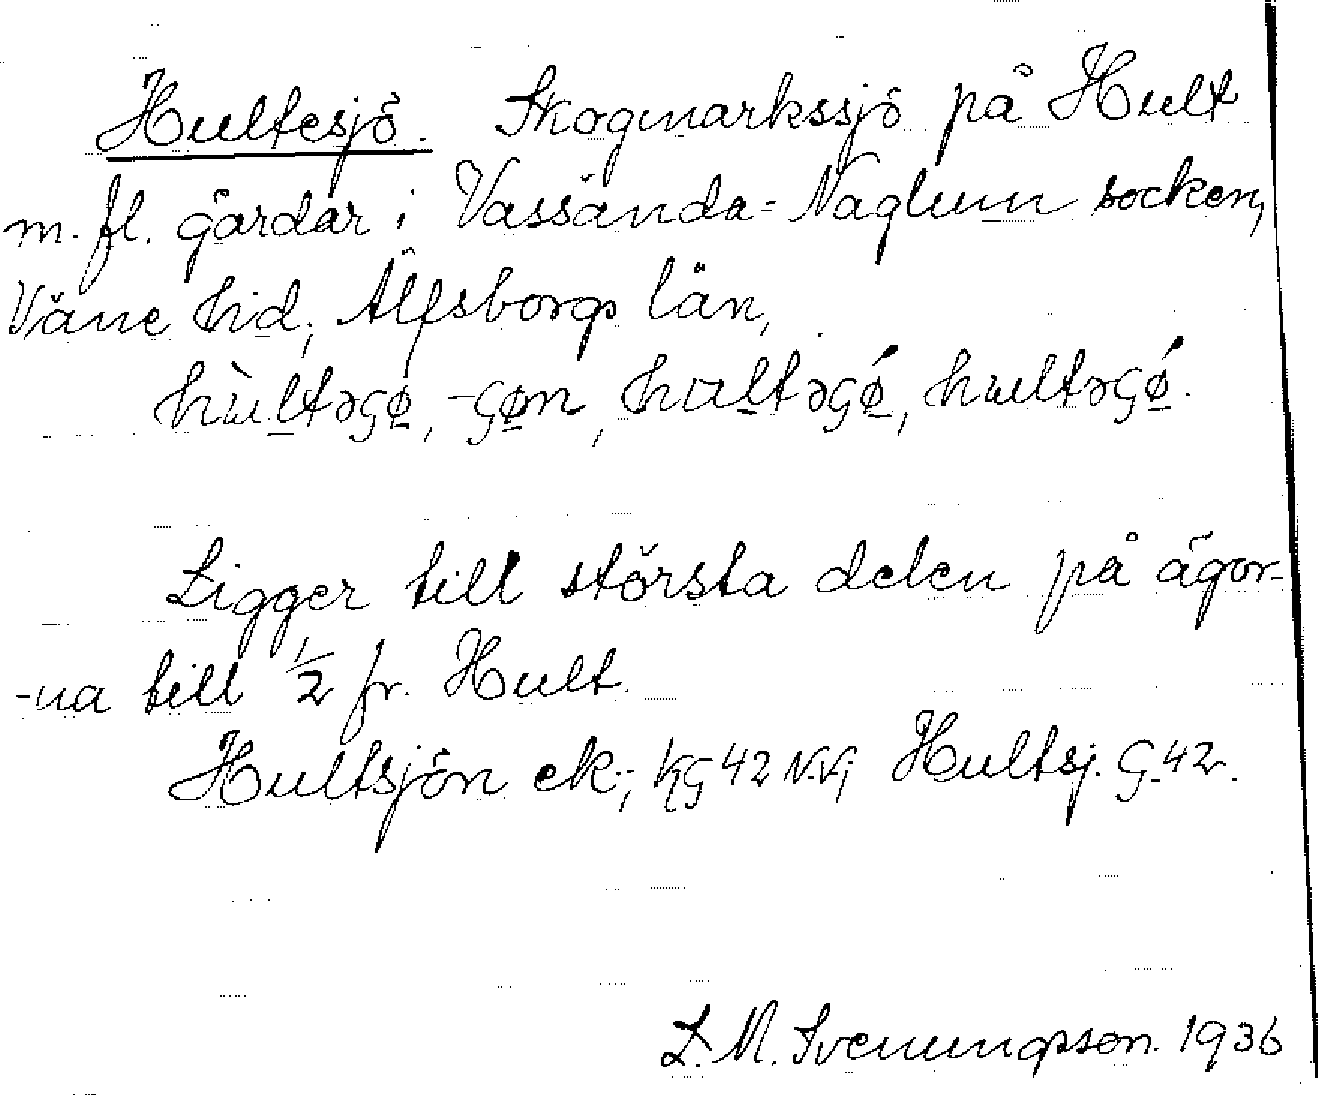 Hultesjö. Skogmarkssjö på Hult
m. fl. gårdar i Vassända-Naglum socken,
Väne hd, Älfsborgs län,
hùltəɢø, -ɢøn, hultəɢǿ, hultəɢǿ.
Ligger till största delen på ägor-
-na till 1/2 fr. Hult.
Hultsjön ek.; kɢ 42 NV; Hultsj. G 42.
L. M. Svenungsson. 1936